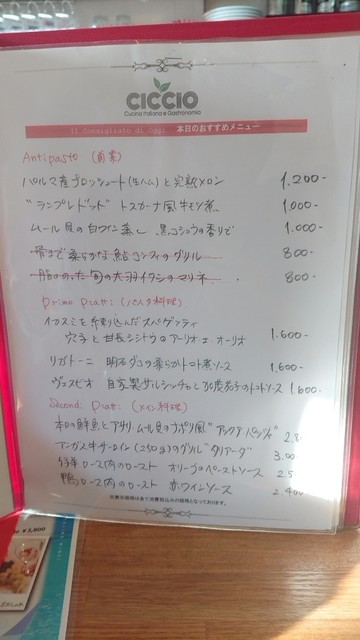 CICCIO
Cucina Italiana e Gastronomia
Il Consigliato di Oggi 本日のおすすめメニュー
Antipasto (前菜)
パルマ産プロシュート(生ハム)と完熟メロン 1.200-
"ランプレドット" トスカーナ風牛モツ煮 1.000-
ムール貝の白ワイン蒸し 黒コショウの香りで 1.000-
骨まで柔らかな鮎コンフィのグリル 800-
脂ののった旬の大羽イワシのマリネ 800-
Primo Piatti (パスタ料理)
イカスミを練り込んだスパゲッティ
穴子と甘長シシトウのアーリオ・エ・オーリオ 1.600-
リガトーニ 明石ダコの柔らかトマト煮ソース 1.600-
ヴェスビオ 自家製サルシッチャと加茂茄子のトマトソース 1.600-
Second Piatti (メイン料理)
本日の鮮魚とアサリ、ムール貝のナポリ風 "アックアパッツァ" 2.8
アンガス牛サーロイン(250g)のグリル "タリアータ" 3.00
仔羊ロース肉のロースト オリーブのペーストソース 2.5
鴨ロース肉のロースト 赤ワインソース 2.400
※表示価格は全て消費税込みの価格となっております。
¥3,800